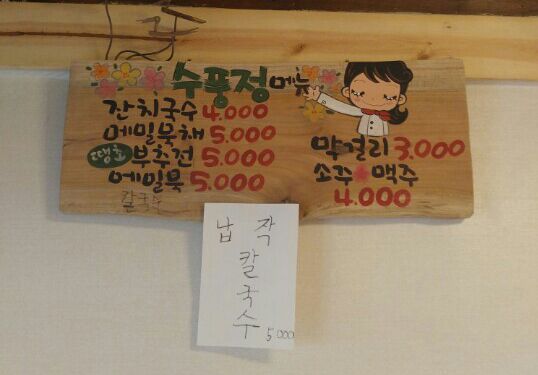 수풍정 메뉴
잔치국수 4.000
메밀묵채 5.000
땡초 부추전 5.000
메밀묵 5.000
칼국수
막걸리 3.000
소주 맥주
4.000
납작
칼
국
수 5000